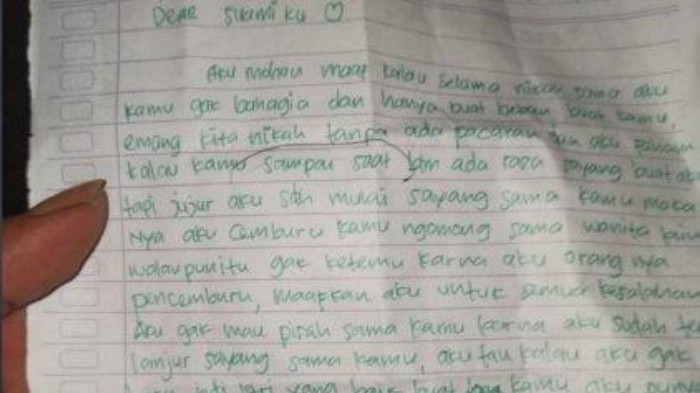 DEAR SUAMI KU ♡
Aku mohon maaf kalau selama nikah sama aku
kamu gak bahagia dan hanya buat beban buat kamu,
emang kita nikah tanpa ada pacaran dan aku paham
kalau kamu sampai saat ada rasa sayang buat aku
tapi jujur aku sdh mulai sayang sama kamu maka
Nya aku cemburu kamu ngomong sama wanita lain
walaupun itu gak ketemu karna aku orang nya
pencemburu, maafkan aku untuk semua kesalahan
Aku gak mau pisah sama kamu karna aku sudah
lanjur sayang sama kamu, aku tau kalau aku gak
yang baik buat kamu aku